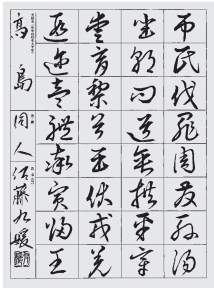 弔民伐罪周發殷湯
坐朝問道垂拱平章
愛育黎首臣伏戎羌
遐邇壹體率賓歸王
高島 人佐藤